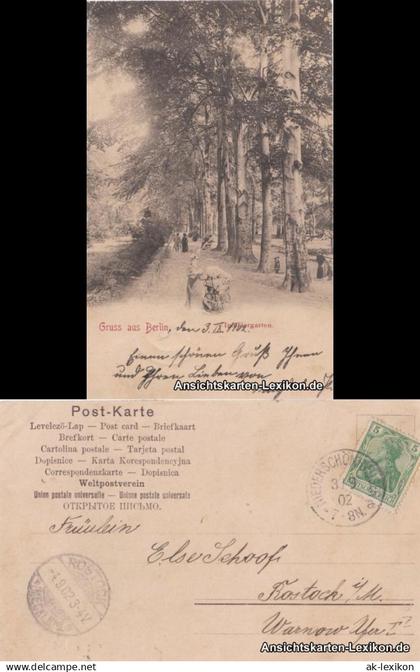 Gruss aus Berlin, den 3. IX. 1902.
Tiergarten.
Einen schönen Gruß Ihnen
und Ihren Lieben von
Ansichtskarten-Lexikon.de
Post-Karte
Levelező-Lap — Post card — Briefkaart
Brefkort — Carte postale
Cartolina postale — Tarjeta postal
Dopisnice — Karta Korespondencyjna
Correspondenzkarte — Dopisnica
Weltpostverein
Union postale universelle — Unione postale universale
ОТКРЫТОЕ ПИСЬМО.
5
3 9
02
7-8N.
Fräulein
Else Schoof
Rostock i/M.
Warnow Ufer
ROSTOCK
4.9.02 3-4V
Ansichtskarten-Lexikon.de
ak-lexikon.de